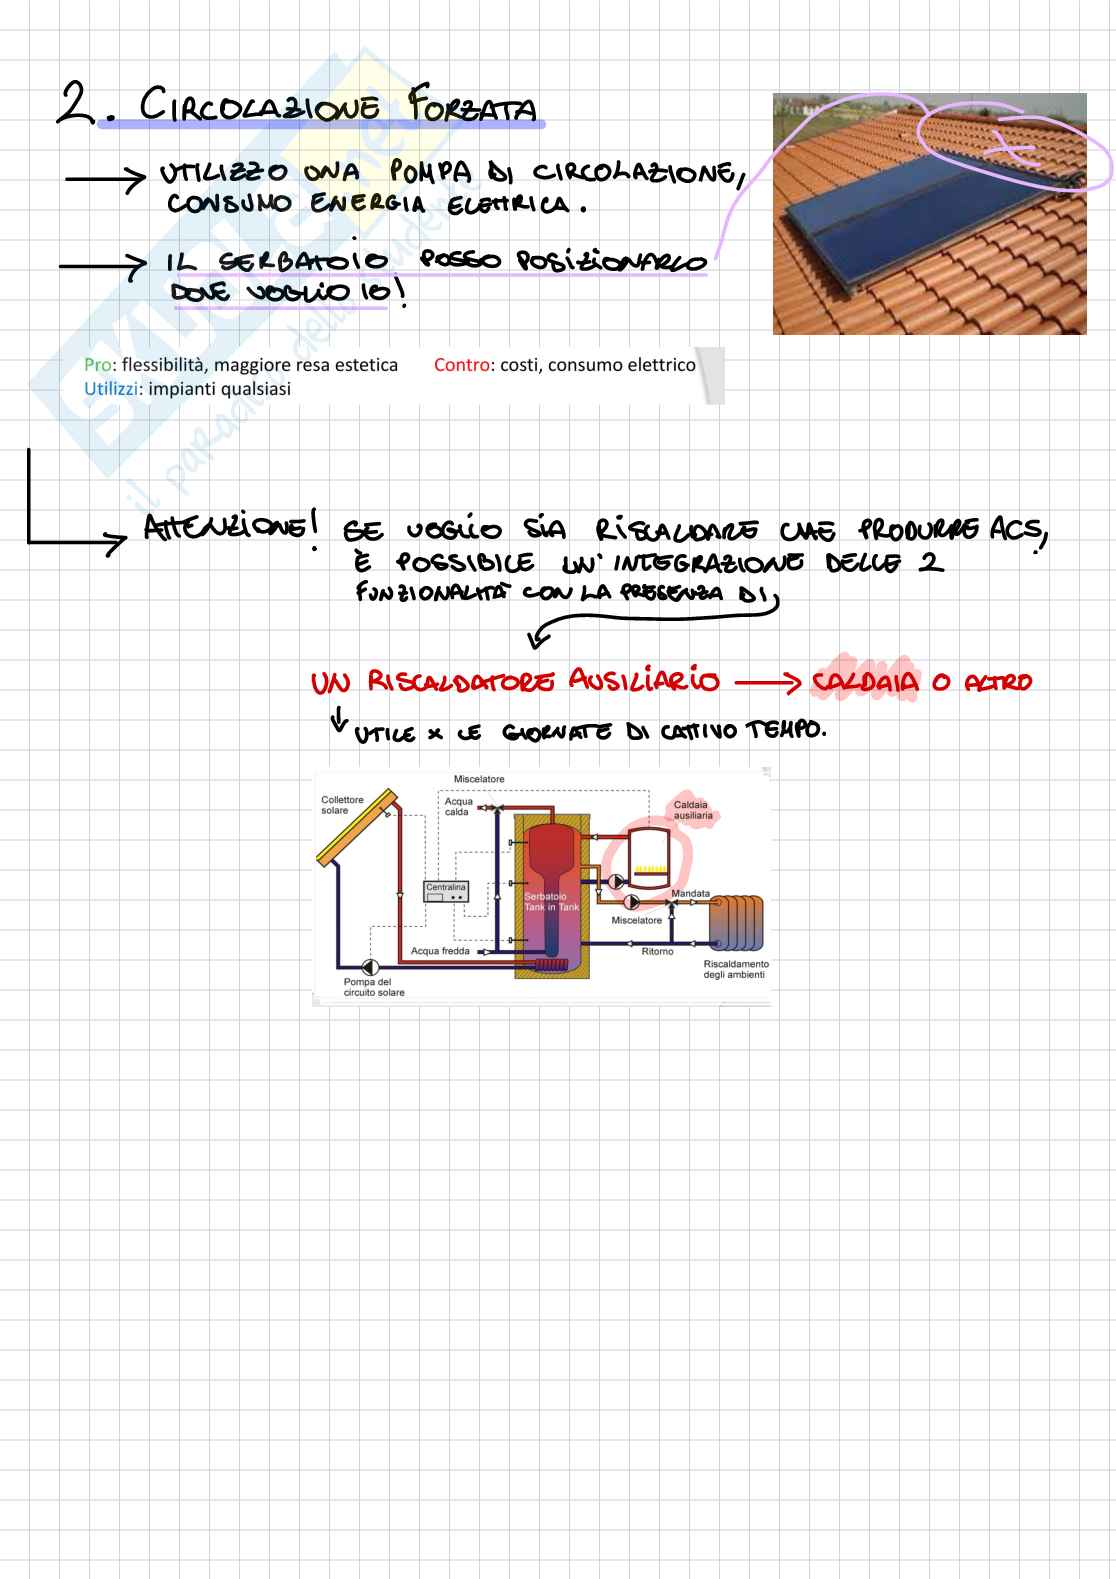 2. CIRCOLAZIONE FORZATA
→ UTILIZZO UNA POMPA DI CIRCOLAZIONE,
CONSUMO ENERGIA ELETTRICA.
→ IL SERBATOIO POSSO POSIZIONARLO
DOVE VOGLIO IO!
Pro: flessibilità, maggiore resa estetica Contro: costi, consumo elettrico
Utilizzi: impianti qualsiasi
SKUOLA.net
il paradiso dello studente
→ ATTENZIONE! SE VOGLIO SIA RISCALDARE CHE PRODURRE ACS,
È POSSIBILE UN'INTEGRAZIONE DELLE 2
FUNZIONALITÀ CON LA PRESENZA DI
UN RISCALDATORE AUSILIARIO → CALDAIA O ALTRO
↓ UTILE x LE GIORNATE DI CATTIVO TEMPO.
Miscelatore
Collettore
solare
Acqua
calda
Caldaia
ausiliaria
Centralina
Serbatoio
Tank in Tank
Mandata
Miscelatore
Acqua fredda
Ritorno
Riscaldamento
degli ambienti
Pompa del
circuito solare